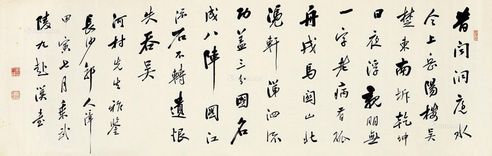 昔聞洞庭水
今上岳陽樓吳
楚東南坼乾坤
日夜浮親朋無
一字老病有孤
舟戎馬關山北
憑軒涕泗流
功蓋三分國名
成八陣圖江
流石不轉遺恨
失吞吳
河村先生雅鑒
長沙
甲寅七月